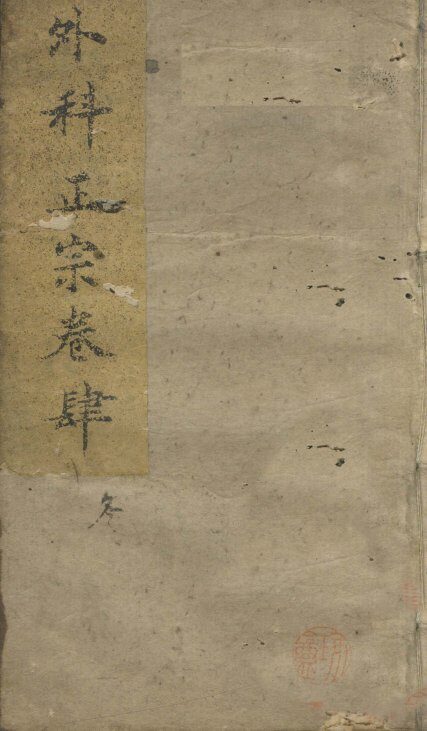 外科正宗卷肆
冬